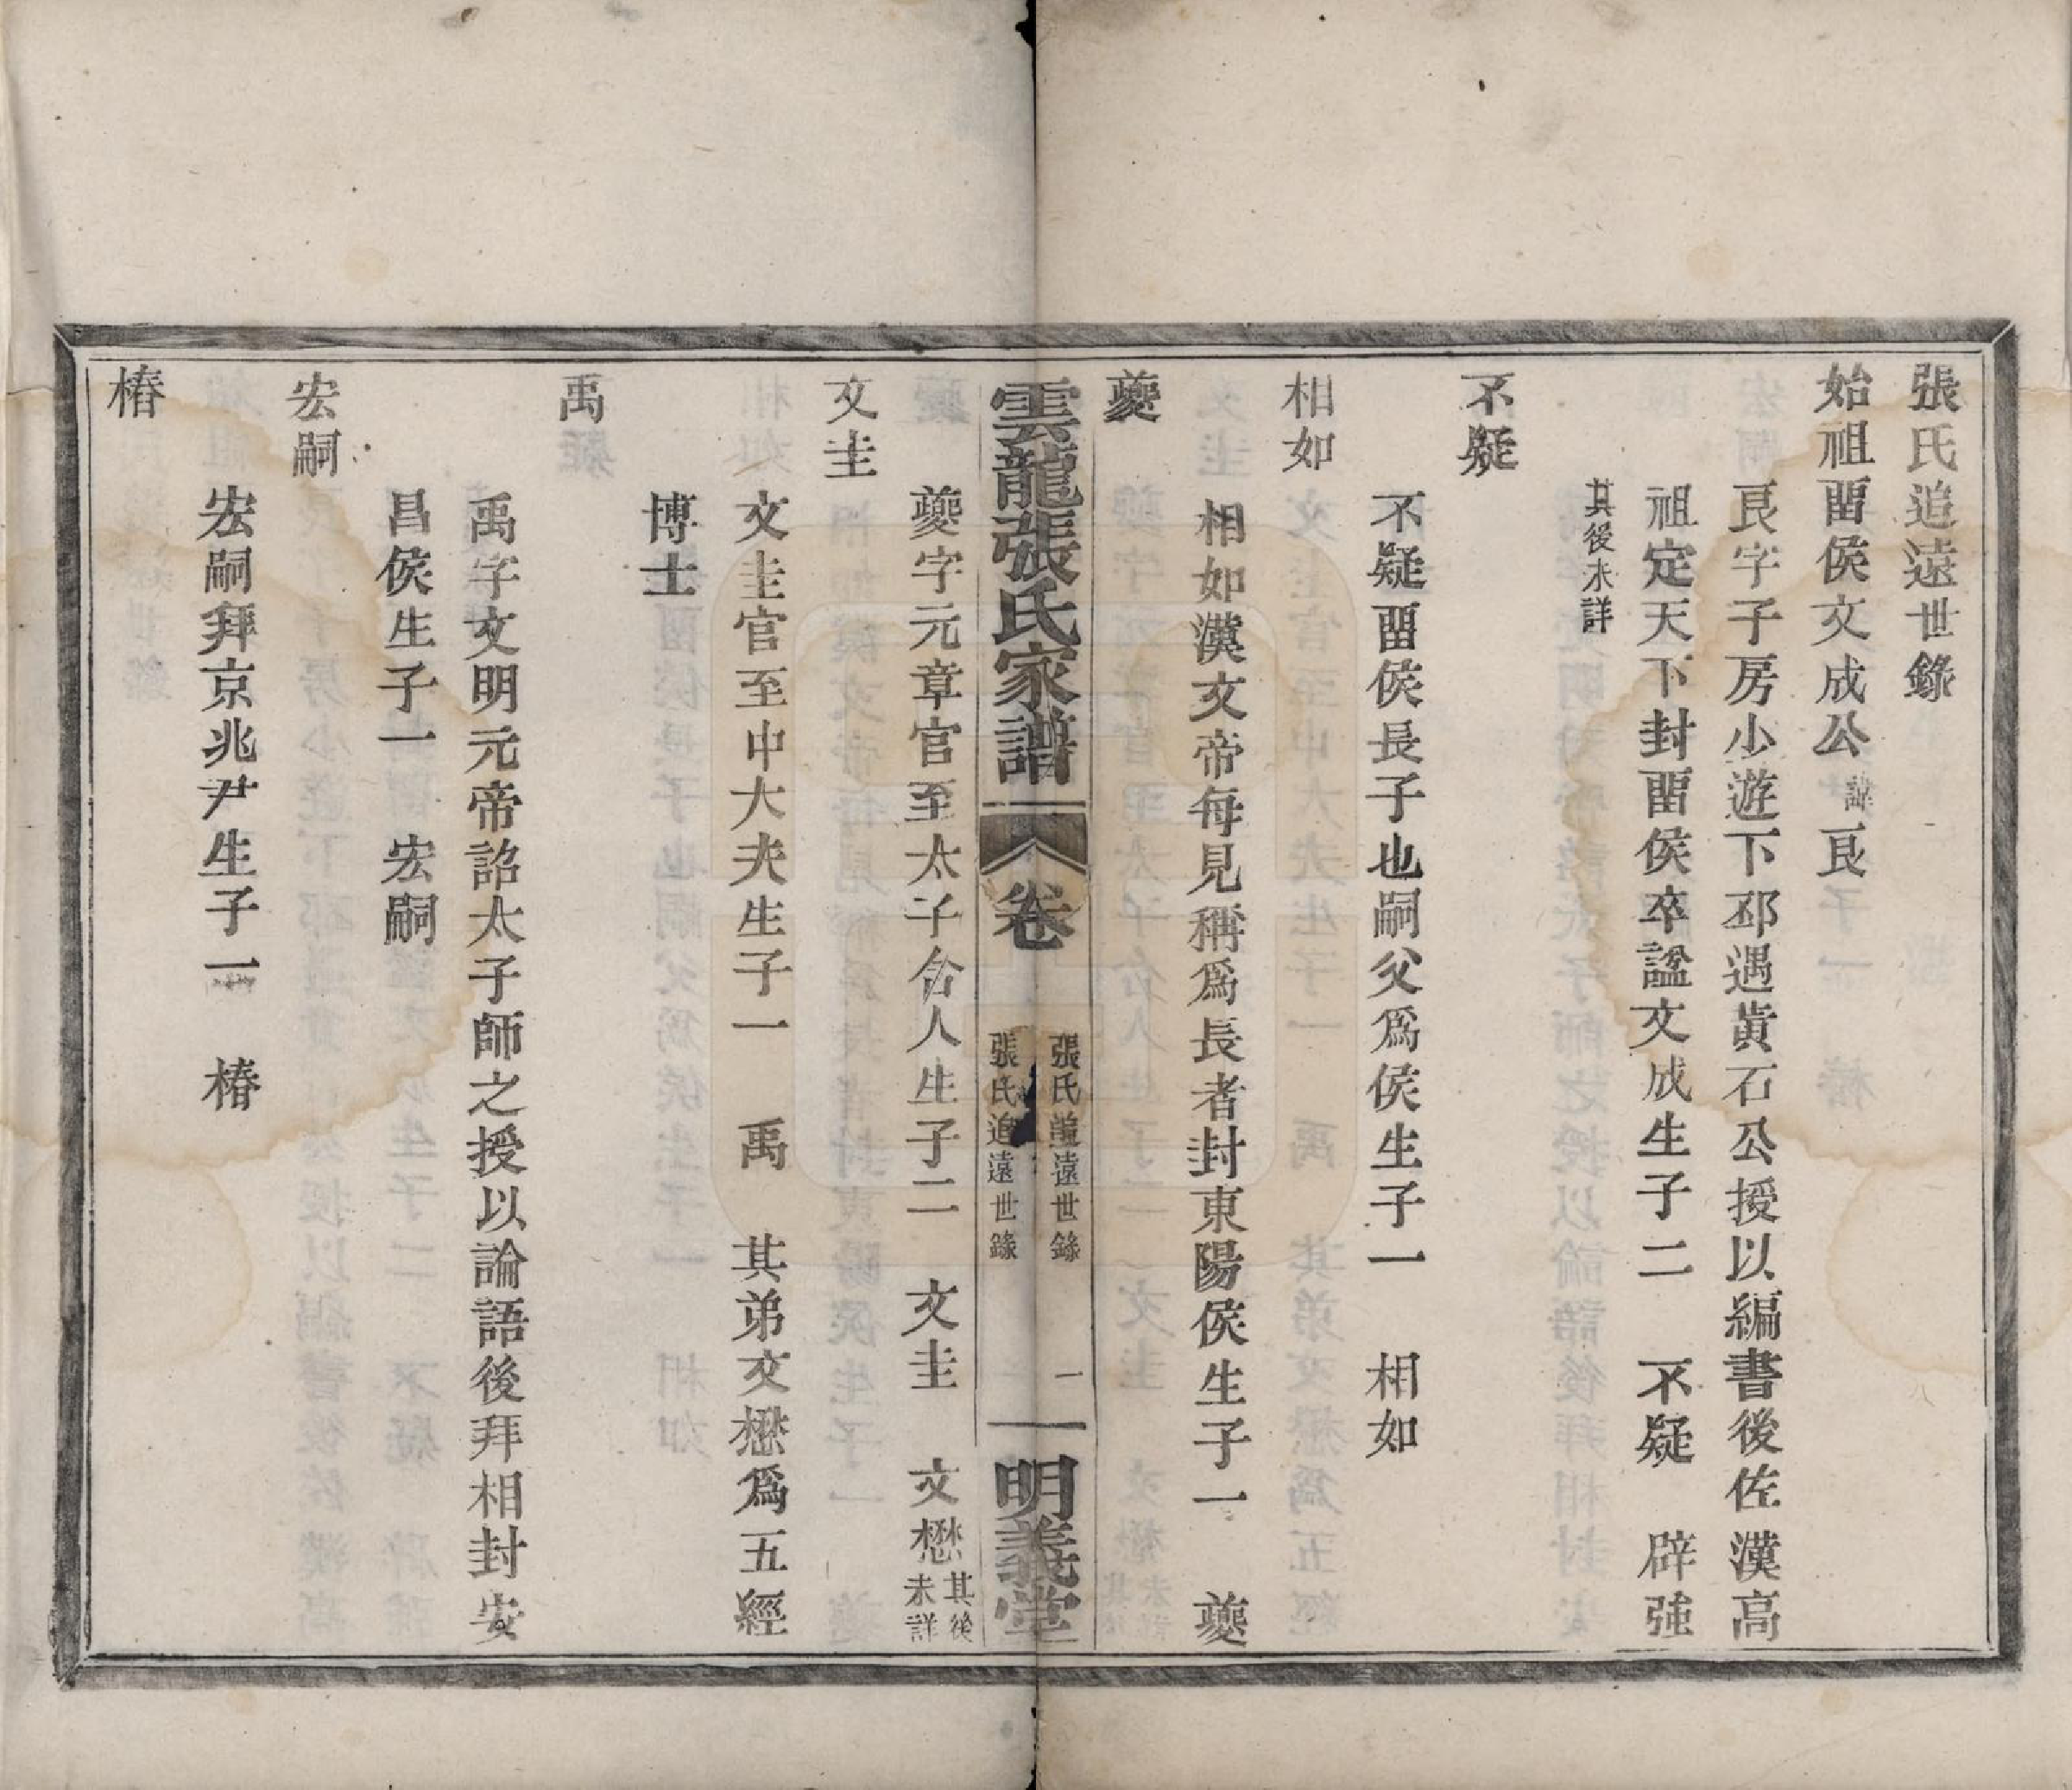 張氏追遠世錄
始祖畱侯文成公諱良
良字子房少遊下邳遇黃石公授以編書後佐漢高
祖定天下封畱侯卒諡文成生子二　不疑　辟強
其後未詳
不疑
不疑畱侯長子也嗣父爲侯生子一　相如
相如
相如漢文帝每見稱爲長者封東陽侯生子一　夔
夔
雲龍張氏家譜
卷
張氏追遠世錄
張氏追遠世錄
一
明義堂
夔字元章官至太子舍人生子二　文圭　文懋其後未詳
文圭
文圭官至中大夫生子一　禹　其弟文懋爲五經
博士
禹
禹字文明元帝詔太子師之授以論語後拜相封安
昌侯生子一　宏嗣
宏嗣
宏嗣拜京兆尹生子一　椿
椿